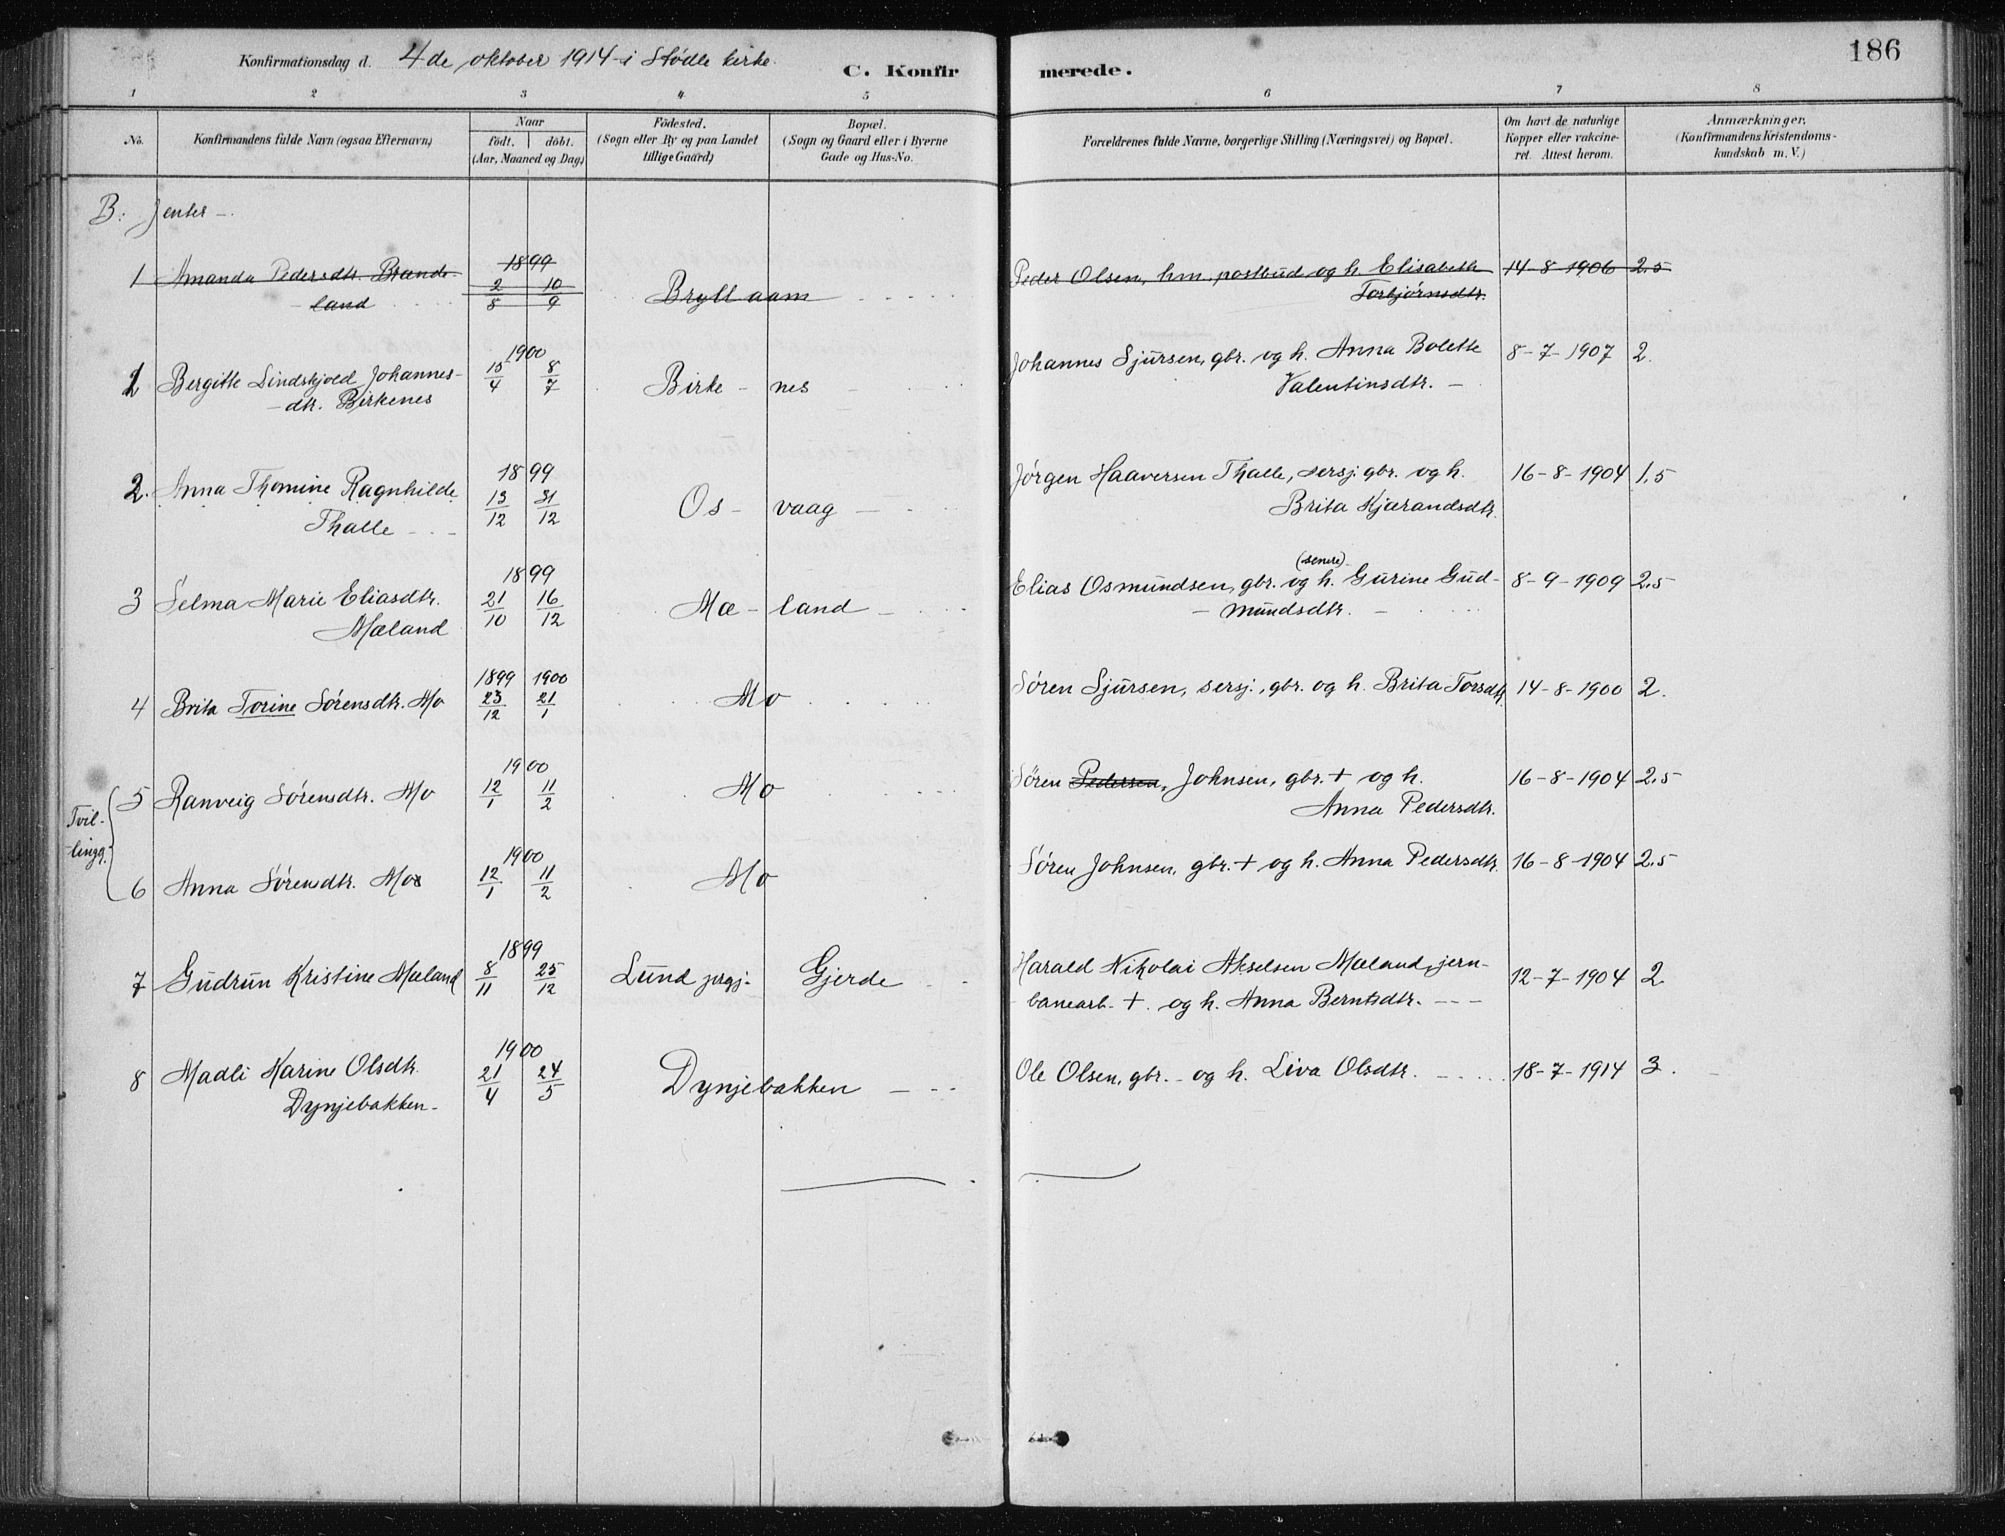 186
Konfirmationsdag d. 4de oktober 1914 i Stødle kirke.
C. Konfirmerede.
1 2 3 4 5 6 7 8
No.
Konfirmandens fulde Navn (ogsaa Efternavn)
Naar
födt. döbt.
(Aar, Maaned og Dag)
Födested.
(Sogn eller By og paa Landet
tillige Gaard)
Bopæl.
(Sogn og Gaard eller i Byerne
Gade og Hus-No.
Forældrenes fulde Navne, borgerlige Stilling (Næringsvei) og Bopæl.
Om havt de naturlige
Kopper eller vakcine-
ret. Attest herom.
Anmærkninger.
(Konfirmandens Kristendoms-
kundskab m. V.)
B: Jenter -
1 Amanda Pedersdtr. Brande-
land
1899
2/8 10/9
Bryllaam
Peder Olsen, hm, postbud og h. Elisabeth
Torbjørnsdtr.
14-8-1906 2.5
1 Bergitte Lindskjold Johannes-
dtr. Birkenes
1900
15/4 8/7
Birke - nes -
Johannes Sjursen, gbr. og h. Anna Bolette
Valentinsdtr. -
8-7-1907 2.
2. Anna Thomine Ragnhilde
Thalle
1899
13/12 31/12
Os - vaag -
Jørgen Haaversen Thalle, sersj. gbr. og h.
Brita Kjærandsdtr.
16-8-1904 1.5
3 Selma Marie Eliasdtr.
Mæland
1899
21/10 16/12
Mæ - land -
(senere)
Elias Osmundsen, gbr. og h. Gurine Gud-
- mundsdtr. -
8-9-1909 2.5
4 Brita Torine Sørensdtr. Mo
1899 1900
23/12 21/1
Mo
Søren Sjursen, sersj., gbr. og h. Brita Torsdtr.
14-8-1900 2.
Tvil-
lingg.
5 Ranveig Sørensdtr. Mo
1900
12/1 11/2
Mo
Søren Pedersen, Johnsen, gbr. + og h.
Anna Pedersdtr.
16-8-1904 2.5
6 Anna Sørensdtr. Mo
1900
12/1 11/2
Mo
Søren Johnsen, gbr. + og h. Anna Pedersdtr.
16-8-1904 2.5
7 Gudrun Kristine Mæland
1899
8/11 25/12
Lund prgj. Gjerde
Harald Nikolai Akselsen Mæland, jern-
banearb. +. og h. Anna Berntsdtr. ---
12-7-1904 2.
8 Madli Karine Olsdtr.
Dynjebakken -
1900
21/4 24/5
Dynjebakken -
Ole Olsen, gbr. - og h. Liva Olsdtr.
18-7-1914 3.